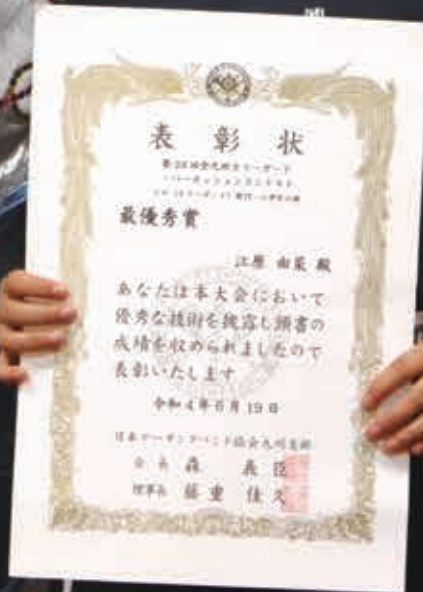 表彰状
第28回全九州カラーガード
パーカッションコンテスト
最優秀賞
江原 由菜 殿
あなたは本大会において
優秀な技術を披露し頭書の
成績を収められましたので
表彰いたします
令和4年6月19日
日本マーチングバンド協会九州支部
会長 森 義臣
理事長 藤重 佳久